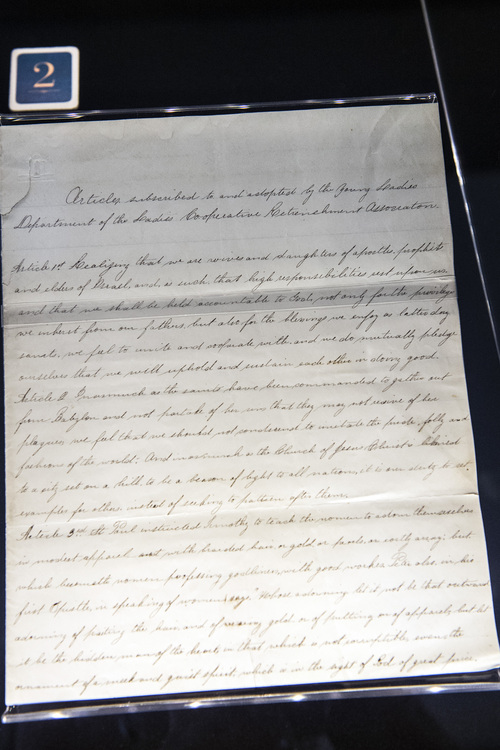 2
Articles subscribed to and adopted by the Young Ladies
Department of the Ladies Cooperative Retrenshment Association
Article 1st Realizing that we are wives and daughters of apostles, prophets
and elders of Israel, and, as such, that high responsibilities rest upon us
and that we shall be held accountable to God, not only for the privileges
we inherit from our fathers but also for the blessings we enjoy as latter day
saints, we feel to unite and cooperate with, and we do mutually pledge
ourselves that we will uphold and sustain each other in doing good.
Article 2 Inasmuch as the saints have been commanded to gather out
from Babylon and not partake of her sins that they may not receive of her
plagues, we feel that we should not condescend to imitate the pride, folly and
fashions of the world. And inasmuch as the Church of Jesus Christ is likened
to a city set on a hill, to be a beacon of light to all nations, it is our duty to set
examples for others instead of seeking to pattern after them.
Article 3rd St. Paul instructed Timothy to teach the women to adorn themselves
in modest apparel, and with braided hair or gold or pearls or costly array; but
which becometh women professing godliness, with good works. Peter also, in his
first Epistle, in speaking of women says "Whose adorning let it not be that outward
adorning of the hair and of wearing gold or of putting on of apparel; but let
it be the hidden man of the heart in that which is not corruptible, even the
ornament of a meek and quiet spirit, which is in the sight of God of great price.